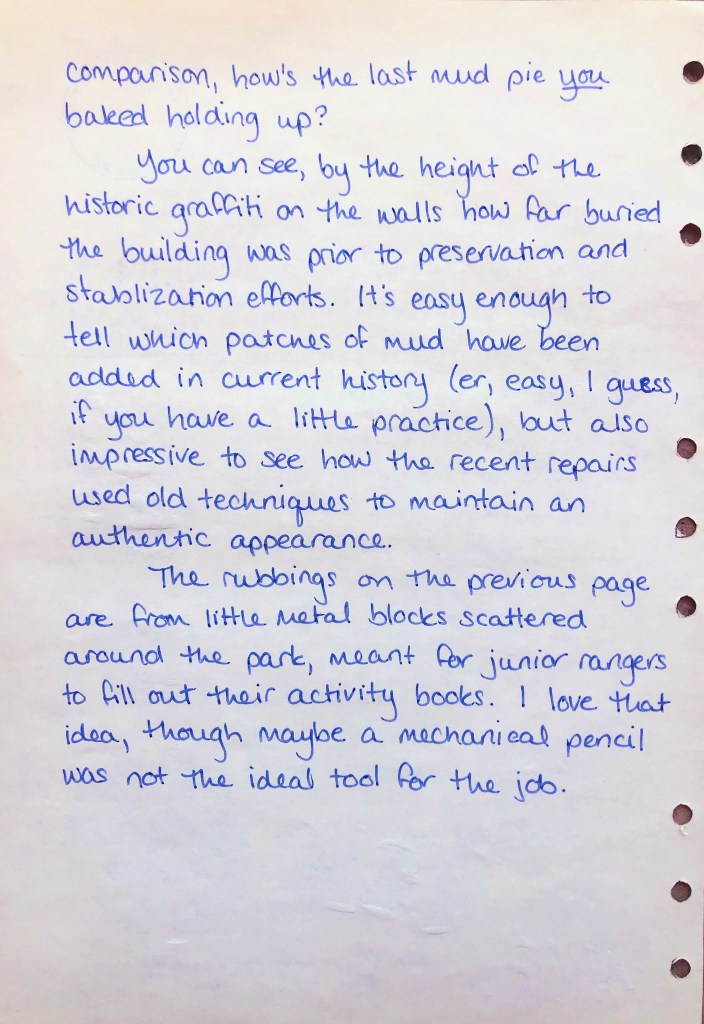 comparison, how's the last mud pie you
baked holding up?
You can see, by the height of the
historic graffiti on the walls how far buried
the building was prior to preservation and
stablization efforts. It's easy enough to
tell which patches of mud have been
added in current history (er, easy, I guess,
if you have a little practice), but also
impressive to see how the recent repairs
used old techniques to maintain an
authentic appearance.
The rubbings on the previous page
are from little metal blocks scattered
around the park, meant for junior rangers
to fill out their activity books. I love that
idea, though maybe a mechanical pencil
was not the ideal tool for the job.